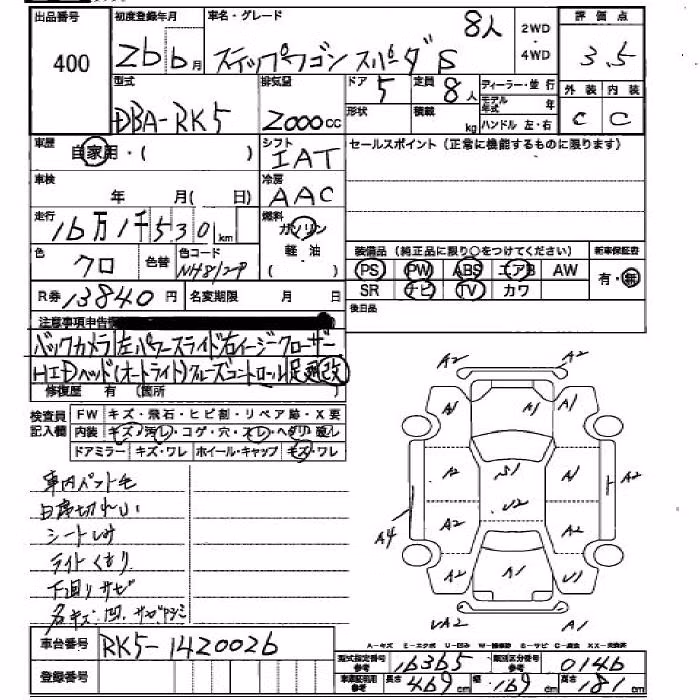 出品番号 初度登録年月 車名・グレード 8人 2WD・4WD 評価点
400 26 6月 ステップワゴン スパーダS 3.5
型式 排気量 ドア 5 定員 8人 ディーラー・並行 外装 内装
DBA-RK5 2000cc 形状 積載 kg モデル年式 年 C C
ハンドル 左・右
車歴 自家用・( ) シフト IAT セールスポイント(正常に機能するものに限ります)
車検 年 月( 日) 冷房 AAC
走行 16万1千5301km 燃料 ガソリン
軽油
( )
色 クロ 色替 色コード NH812P
装備品(純正品に限り○をつけてください) 新車保証書
PS PW ABS エアB AW 有・無
SR ナビ TV カワ
R券 13840円 名変期限 月 日 後日品
注意事項申告
バックカメラ 左パワースライド右イージークローザー
HIDヘッド(オートライト)クルーズコントロール
修復歴 有 (箇所 )
検査員記入欄 FW キズ・飛石・ヒビ割・リペア跡・X要
内装 キズ・汚レ・コゲ・穴・スレ・ヘタリ・
ドアミラー キズ・ワレ ホイール・キャップ キズ・ワレ
車内ペット毛
シートしみ
ライトくもり
下回りサビ
A2 A2
A1 A1
A2 S1 A1 A2
U2
A4 A2 A2
A2 A1 U1
UA2 A1
車台番号 RK5-1420026
登録番号
型式指定番号参考 16365 類別区分番号参考 0146
車庫証明用参考 長さ 469cm 幅 169cm 高さ 181cm